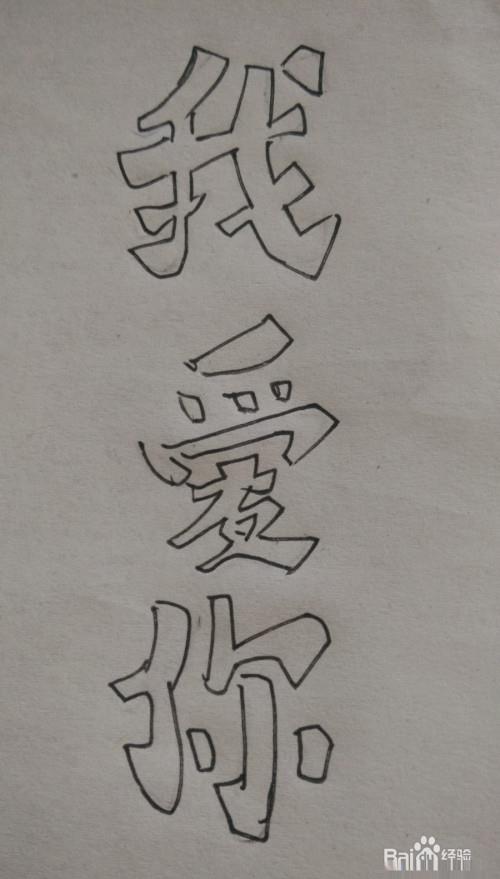 我
爱
你
Baidu经验